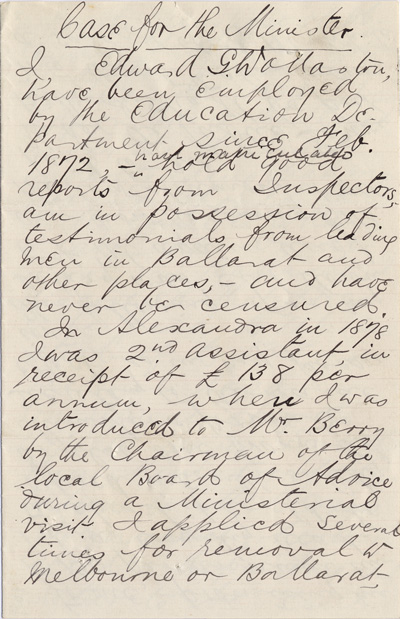 Case for the Minister.
I, Edward G Wollaston,
have been employed
by the Education De-
partment since Feb.
1872, – hold good
reports from Inspectors,
am in possession of
testimonials from leading
men in Ballarat and
other places, – and have
never been censured.
In Alexandra in 1878
I was 2nd assistant, in
receipt of £138 per
annum, when I was
introduced to Mr. Berry
by the Chairman of the
local Board of Advice
during a Ministerial
visit. I applied several
times for removal to
Melbourne or Ballarat,